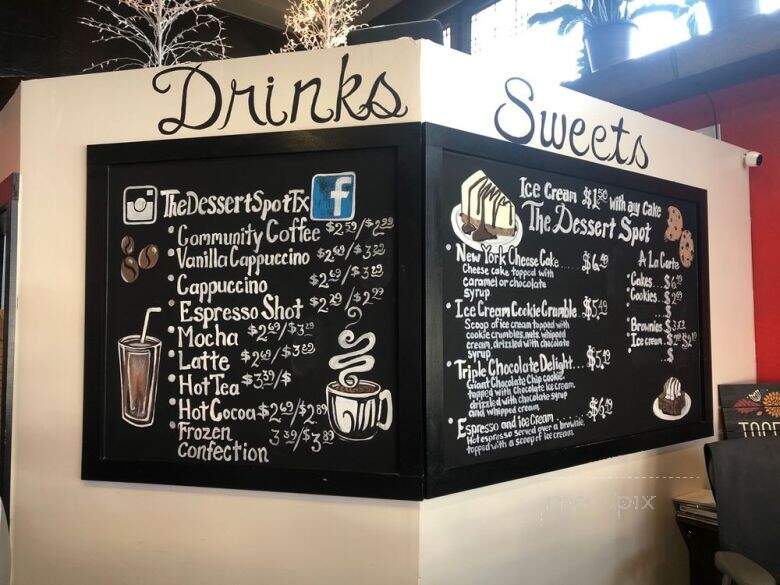 Drinks
TheDessertSpotTx
Community Coffee $2.59/$2.99
Vanilla Cappuccino $2.69/$3.29
Cappuccino $2.69/$3.29
Espresso Shot $2.29/$2.99
Mocha $2.69/$3.29
Latte $2.69/$3.29
Hot Tea $3.39/$
Hot Cocoa $2.69/$2.89
Frozen 3.39/$3.89
Confection
Sweets
Ice Cream $1.50 with any cake
The Dessert Spot
New York Cheese Cake.... $6.49
Cheese cake topped with
caramel or chocolate
syrup
Ice Cream Cookie Crumble.. $5.49
Scoop of ice cream topped with
cookie crumbles, nuts, whipped
cream, drizzled with chocolate
syrup
Triple Chocolate Delight.... $5.49
Giant Chocolate Chip cookie
topped with Chocolate Ice cream,
drizzled with chocolate syrup
and whipped cream.
Espresso and Ice Cream
Hot espresso served over a brownie,
topped with a scoop of ice cream.
A La Carte
Cakes
Cookies
$
Brownies
Ice cream
$